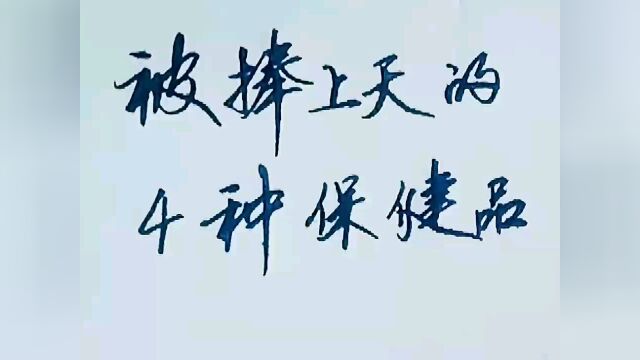 被捧上天的
4种保健品